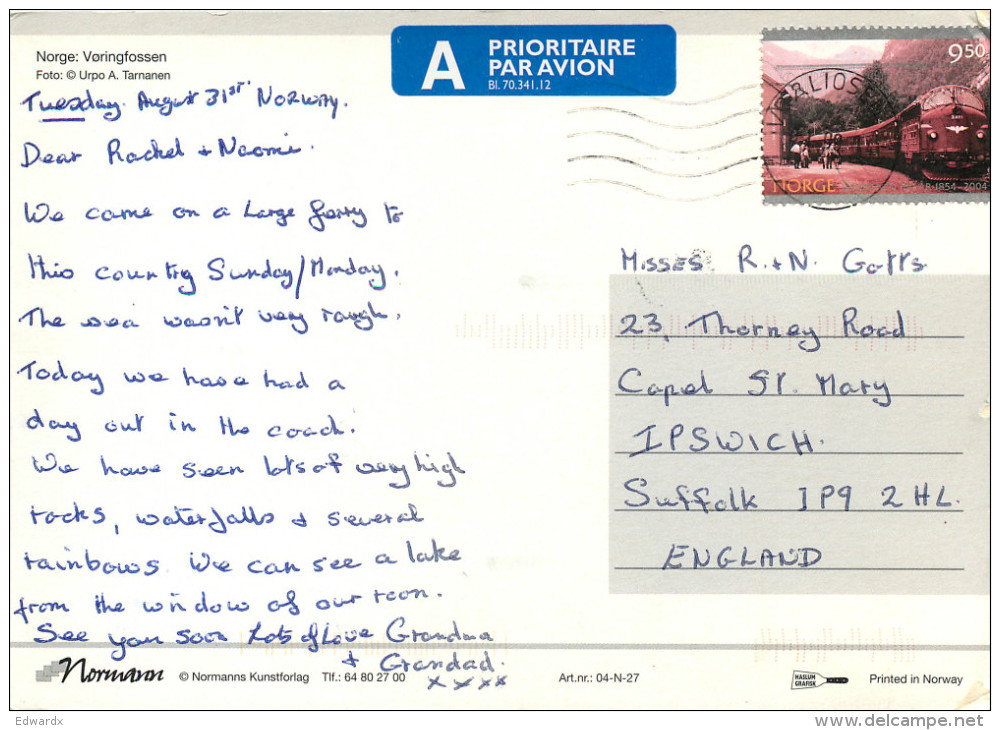 Norge: Vøringfossen
Foto: © Urpo A. Tarnanen
A PRIORITAIRE
PAR AVION
Bl. 70.341.12
9.50
NORGE 1854-2004
Tuesday. August 31st Norway.
Dear Rachel + Naomi.
We came on a Large ferry to
this country Sunday/Monday.
The sea wasn't very rough.
Today we have had a
day out in the coach.
We have seen lots of very high
rocks, waterfalls & several
rainbows. We can see a lake
from the window of our room.
See you soon Lots of Love Grandma
+ Grandad.
x x x x
Misses R.+N. Gotts
23, Thorney Road
Capel St. Mary
IPSWICH.
Suffolk IP9 2HL.
ENGLAND
Normann © Normanns Kunstforlag Tlf.: 64 80 27 00 Art.nr.: 04-N-27 HAGLUM GRAFISK Printed in Norway
Edwardx
delcampe.net